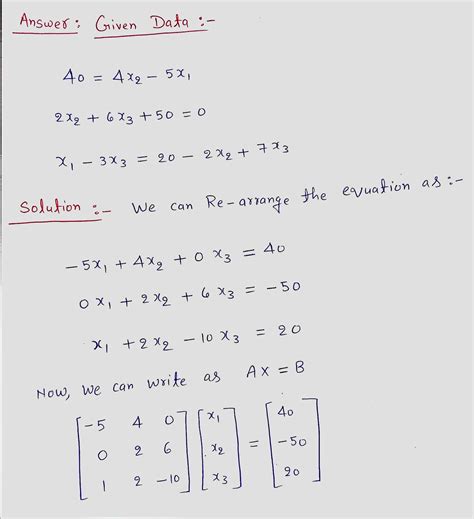 Answer: Given Data :-
40 = 4x₂ - 5x₁
2x₂ + 6x₃ + 50 = 0
x₁ - 3x₃ = 20 - 2x₂ + 7x₃
Solution :- We can Re-arrange the evuation as :-
-5x₁ + 4x₂ + 0x₃ = 40
0x₁ + 2x₂ + 6x₃ = -50
x₁ + 2x₂ - 10x₃ = 20
Now, we can write as AX = B
[-5 4 0] [x₁] [40]
[0 2 6] [x₂] = [-50]
[1 2 -10] [x₃] [20]